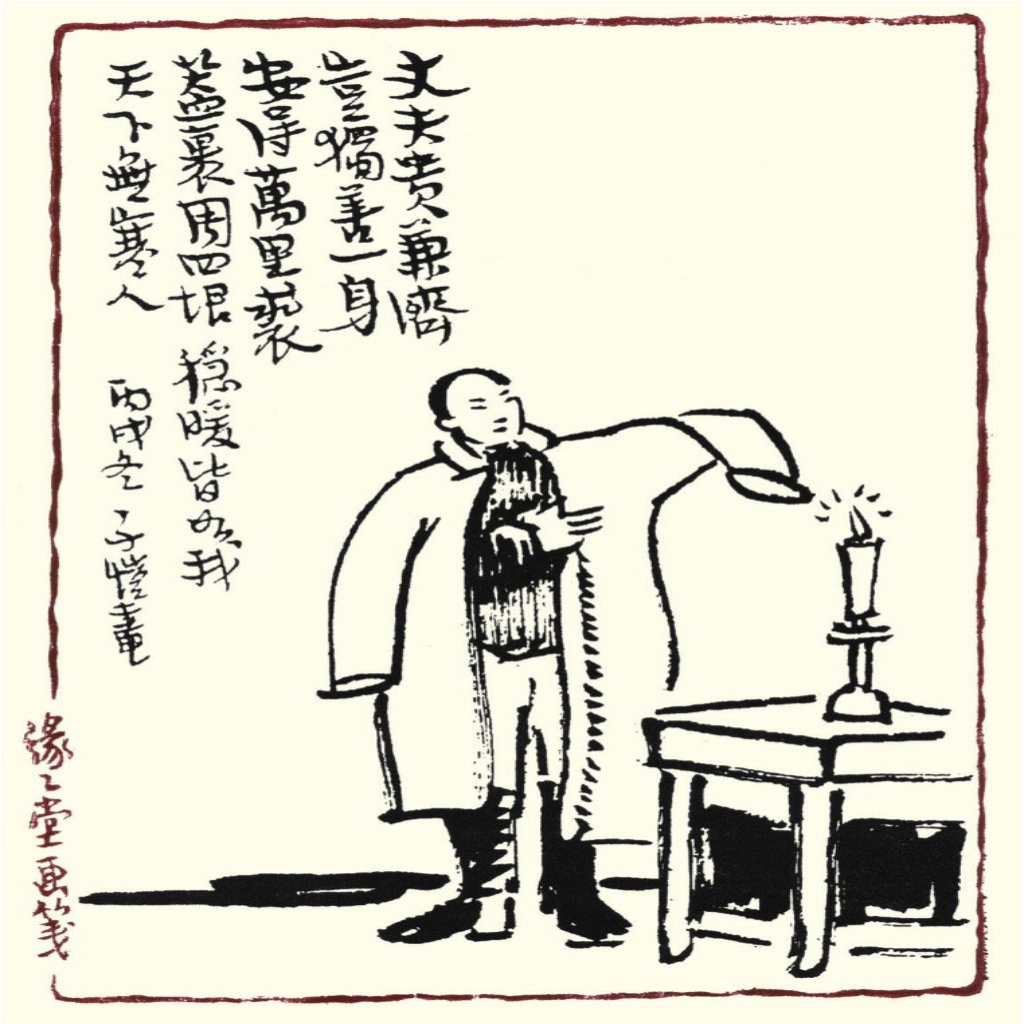 丈夫貴兼濟
豈獨善一身
安得萬里裘
蓋裹周四垠 穩暖皆如我
天下無寒人 丙戌冬 子愷畫
緣〻堂画笺